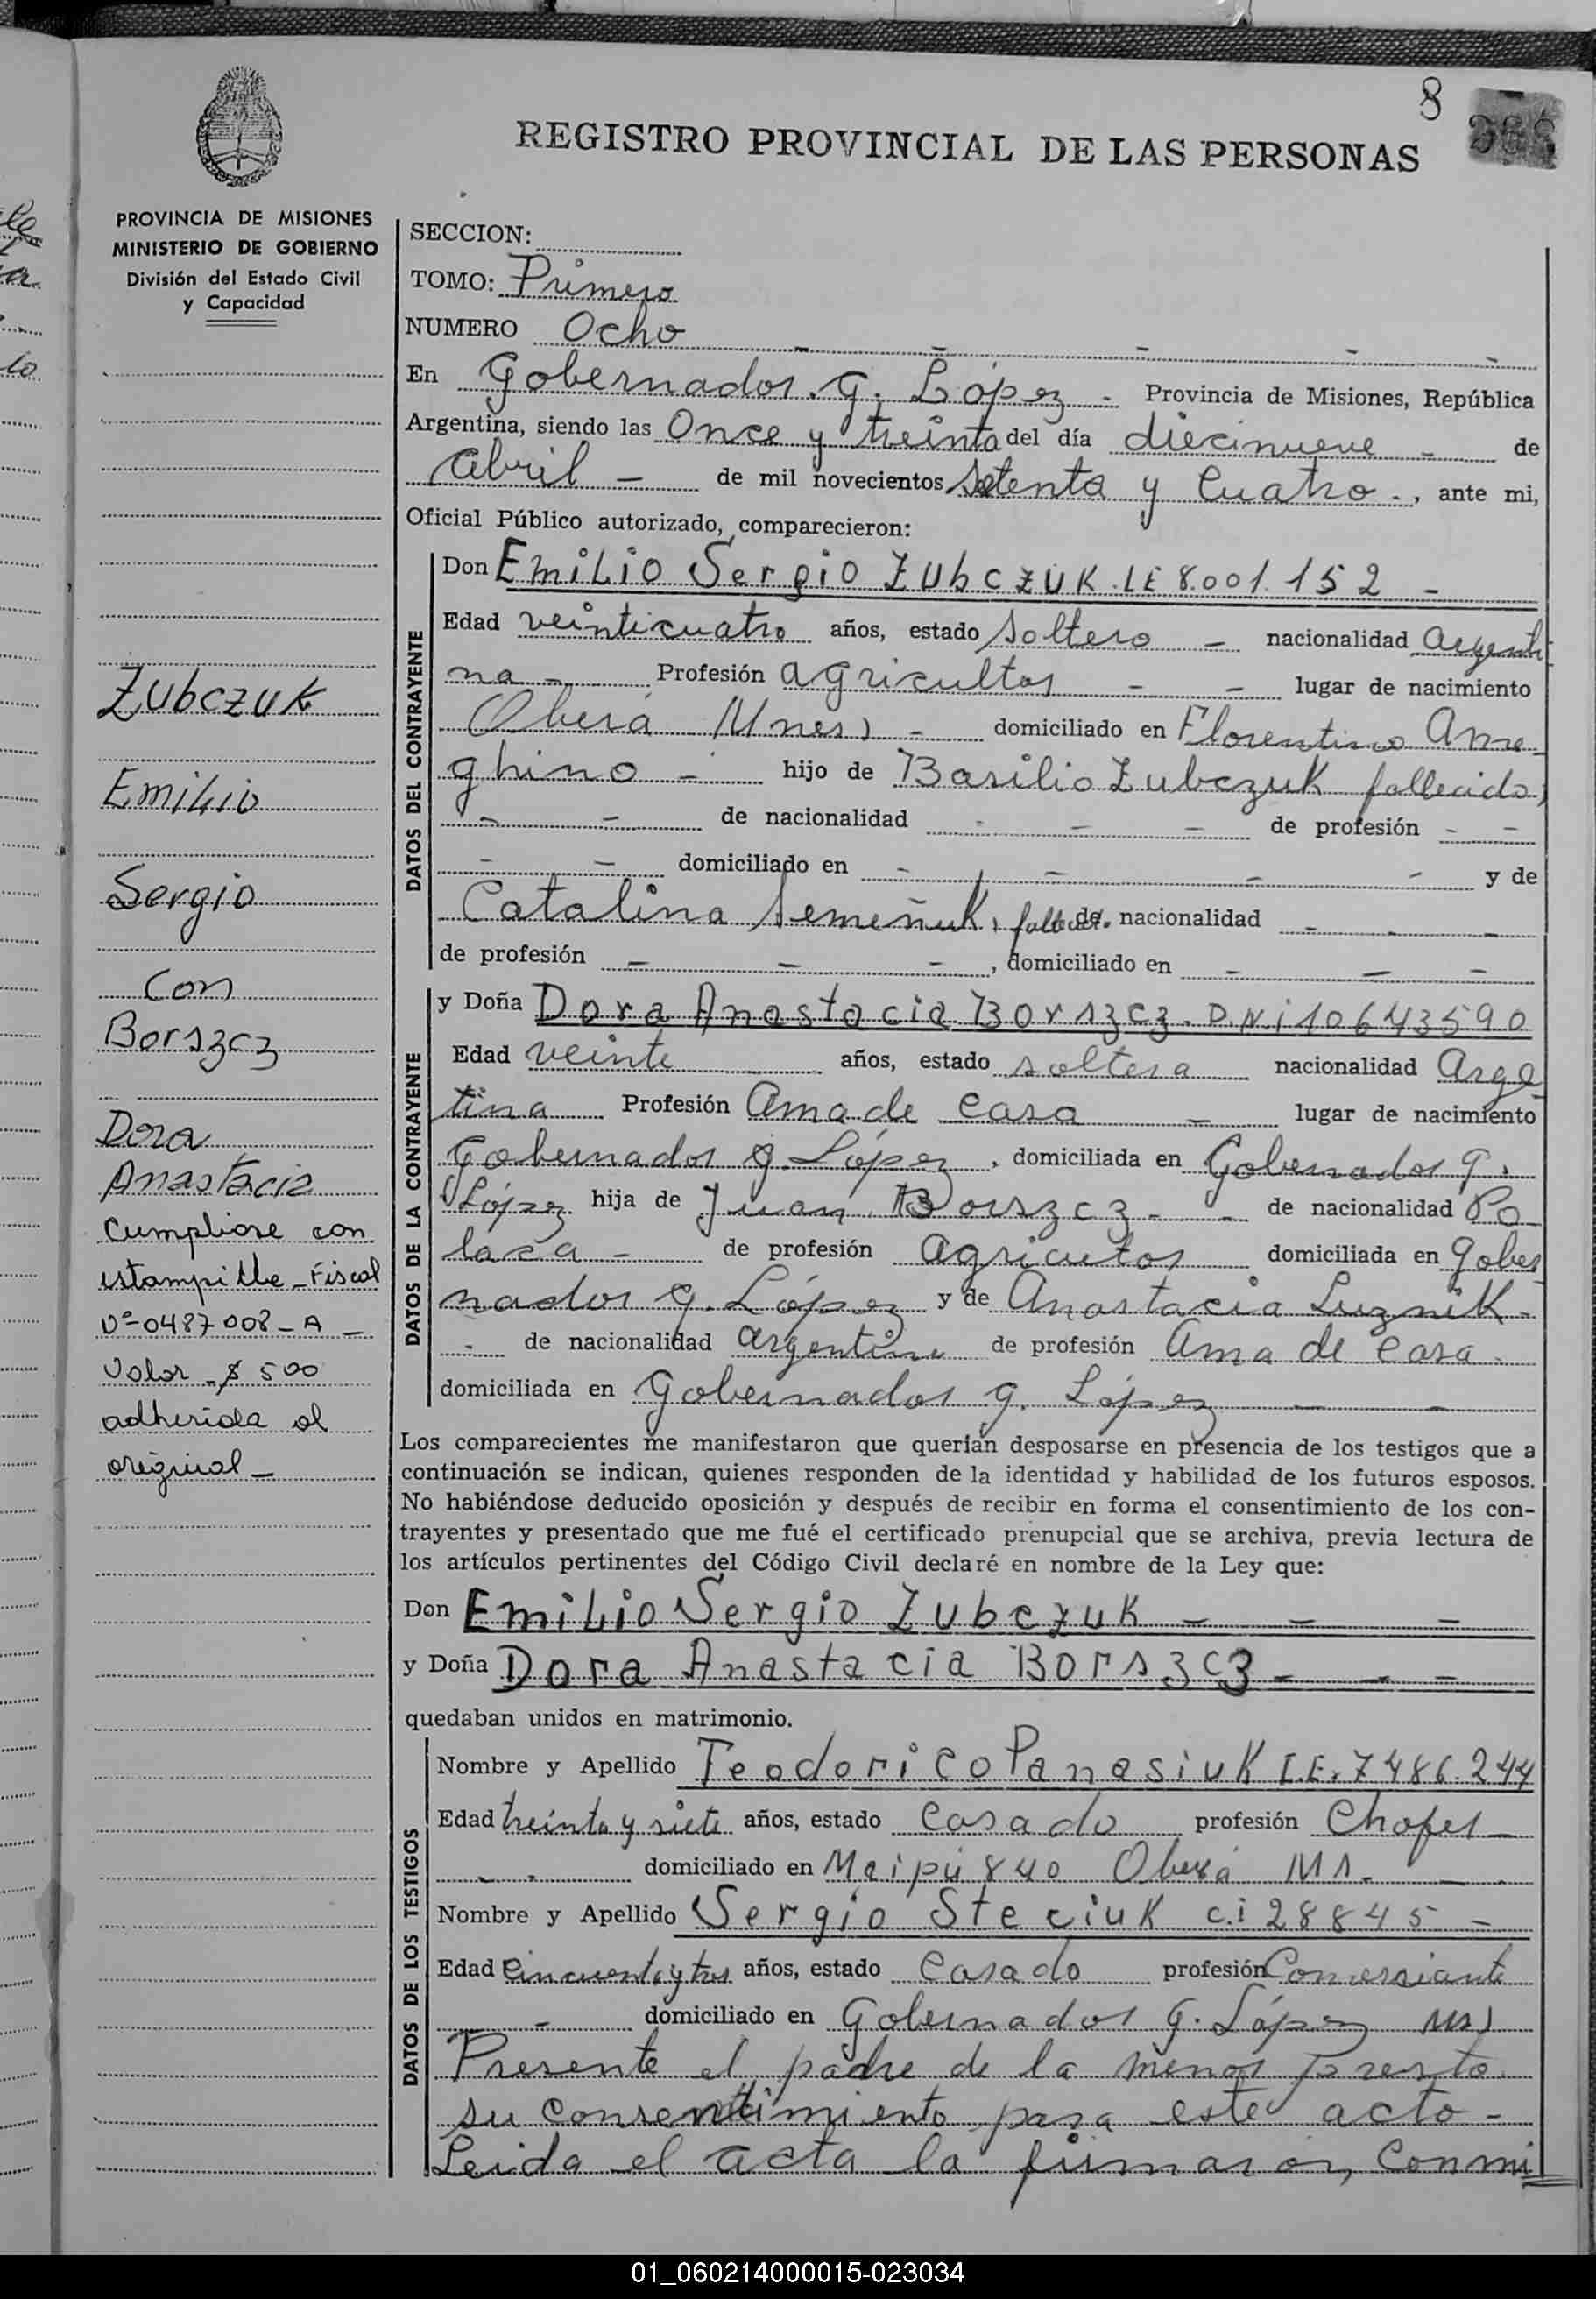 8
REGISTRO PROVINCIAL DE LAS PERSONAS
PROVINCIA DE MISIONES
MINISTERIO DE GOBIERNO
División del Estado Civil
y Capacidad
Zubczuk
Emilio
Sergio
Con
Borszcz
Dora
Anastacia
Cumpliose con
estampilla Fiscal
Nº 0487008-A -
Valor $ 500
adherida al
original -
SECCION:
TOMO: Primero
NUMERO Ocho - - - - -
En Gobernador. G. López - Provincia de Misiones, República
Argentina, siendo las Once y treinta del día diecinueve - de
Abril - de mil novecientos setenta y Cuatro -, ante mi,
Oficial Público autorizado, comparecieron:
DATOS DEL CONTRAYENTE
Don Emilio Sergio Zubczuk. LE 8.001.152 -
Edad veinticuatro años, estado soltero - nacionalidad Argenti
na - Profesión agricultor - - lugar de nacimiento
Oberá (Mnes) - domiciliado en Florentino Ame
ghino - hijo de Basilio Zubczuk fallecido,
- - de nacionalidad - - - de profesión - -
- - domiciliado en - - - - y de
Catalina Semeñuk, de nacionalidad - - -
de profesión - - -, domiciliado en - - -
DATOS DE LA CONTRAYENTE
y Doña Dora Anastacia Borszcz. D.N.i 10643590
Edad veinte años, estado soltera nacionalidad Arge
tina Profesión Ama de Casa - lugar de nacimiento
Gobernador G. López, domiciliada en Gobernador G.
López hija de Juan Borszcz - - de nacionalidad Po
laca - de profesión agricutor domiciliada en Gober
nador G. López y de Anastacia Luznik -
- de nacionalidad argentina de profesión Ama de Casa -
domiciliada en Gobernador G. López - -
Los comparecientes me manifestaron que querían desposarse en presencia de los testigos que a
continuación se indican, quienes responden de la identidad y habilidad de los futuros esposos.
No habiéndose deducido oposición y después de recibir en forma el consentimiento de los con-
trayentes y presentado que me fué el certificado prenupcial que se archiva, previa lectura de
los artículos pertinentes del Código Civil declaré en nombre de la Ley que:
Don Emilio Sergio Zubczuk - - -
y Doña Dora Anastacia Borszcz - - -
quedaban unidos en matrimonio.
DATOS DE LOS TESTIGOS
Nombre y Apellido Teodorico Panasiuk L.E. 7486.244
Edad treinta y siete años, estado Casado profesión Chofer -
- - domiciliado en Maipú 840 Oberá Ms. - -
Nombre y Apellido Sergio Steciuk c.i 28845 -
Edad cincuenta y tres años, estado Casado profesión Comersiante
- domiciliado en Gobernador G. López Ms)
Presente el padre de la menor presto
su consentimiento para este acto -
Leida el acta la firmaron, Conmi
01_060214000015-023034